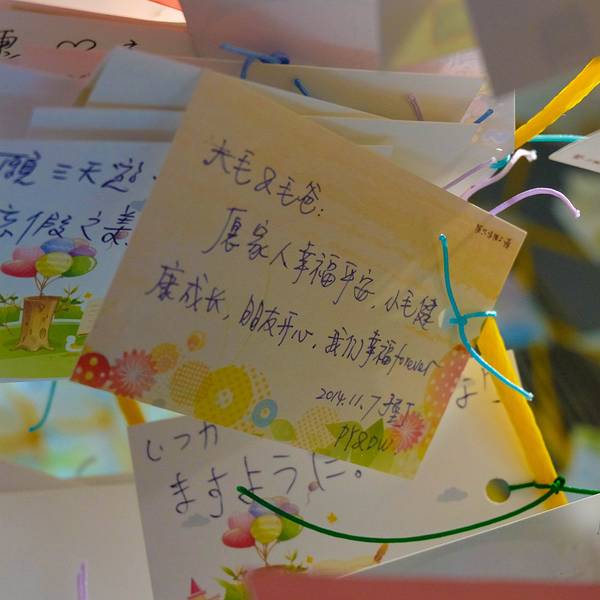 願三天
假之美
大毛&毛爸:
愿家人幸福平安,小毛健
康成长,朋友开心,我们幸福forever
2014.11.7
PY&DW
いつか
ますように。